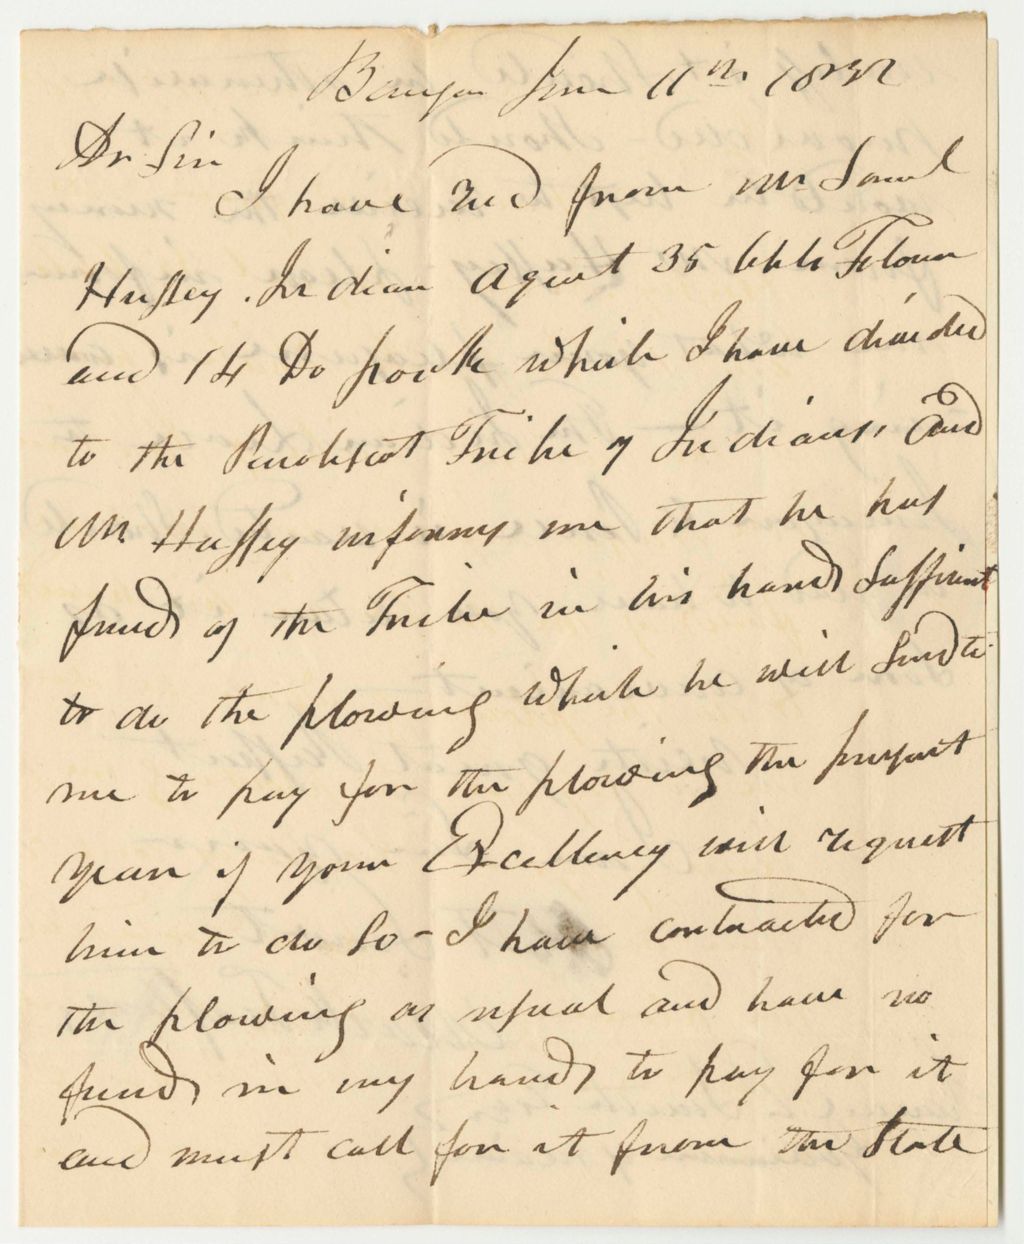 Bangor June 11th 1832
Dr Sir
I have recd from Mr Saml
Hussey Indian Agent 35 bbls Flour
and 14 Do pork which I have divided
to the Penobscot Tribe of Indians, And
Mr Hussey informs me that he has
funds of the Tribe in his hands Suffient
to do the plowing which he will Send to
me to pay for the plowing the present
year if your Excellency will request
him to do So - I have contracted for
the plowing as usual and have no
funds in my hands to pay for it
and must call for it from the State